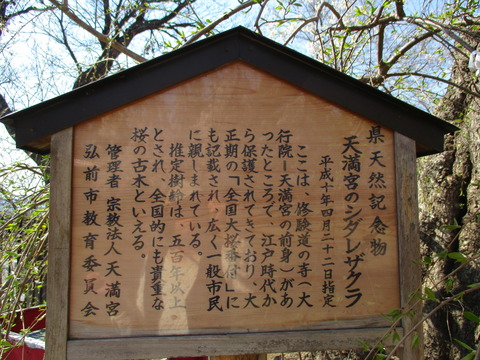 県天然記念物
天満宮のシダレザクラ
平成十年四月二十二日指定
ここは、修験道の寺（大
行院－天満宮の前身）があ
ったところで、江戸時代か
ら保護されてきており、大
正期の「全国大桜番付」に
も記載され、広く一般市民
に親しまれている。
推定樹齢は、五百年以上
とされ、全国的にも貴重な
桜の古木といえる。
管理者 宗教法人 天満宮
弘前市教育委員会